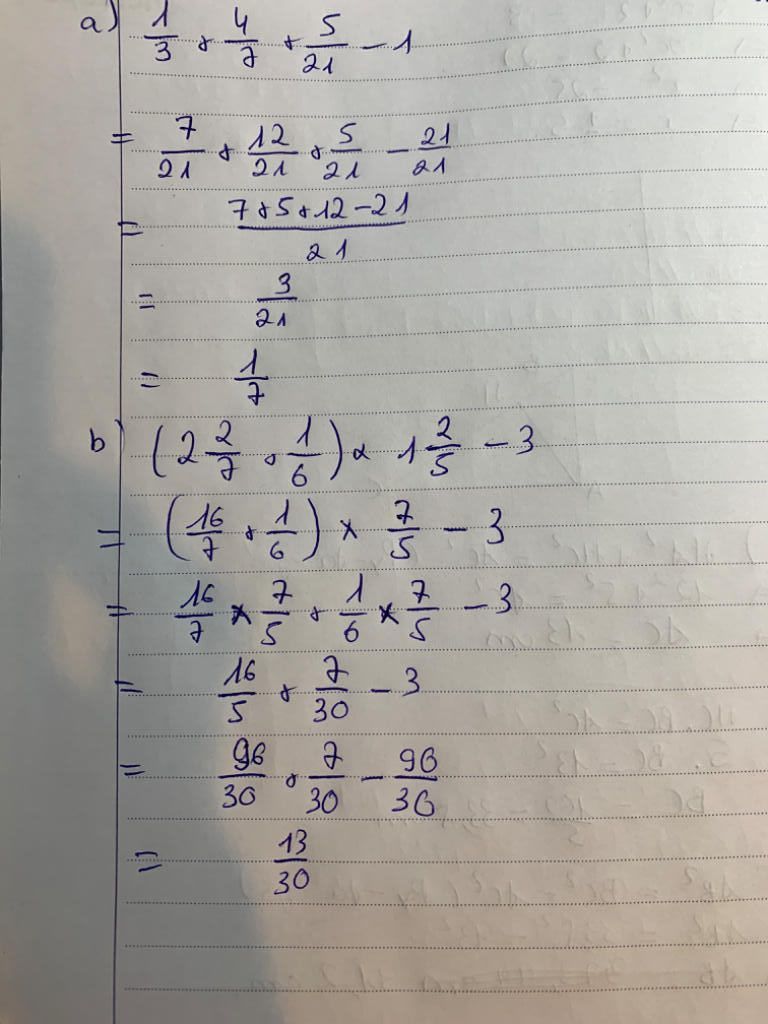 a) 1/3 + 4/7 + 5/21 - 1
= 7/21 + 12/21 + 5/21 - 21/21
= (7+5+12-21)/21
= 3/21
= 1/7
b) (2 2/7 + 1/6) × 1 2/5 - 3
= (16/7 + 1/6) × 7/5 - 3
= 16/7 × 7/5 + 1/6 × 7/5 - 3
= 16/5 + 7/30 - 3
= 96/30 + 7/30 - 90/30
= 13/30